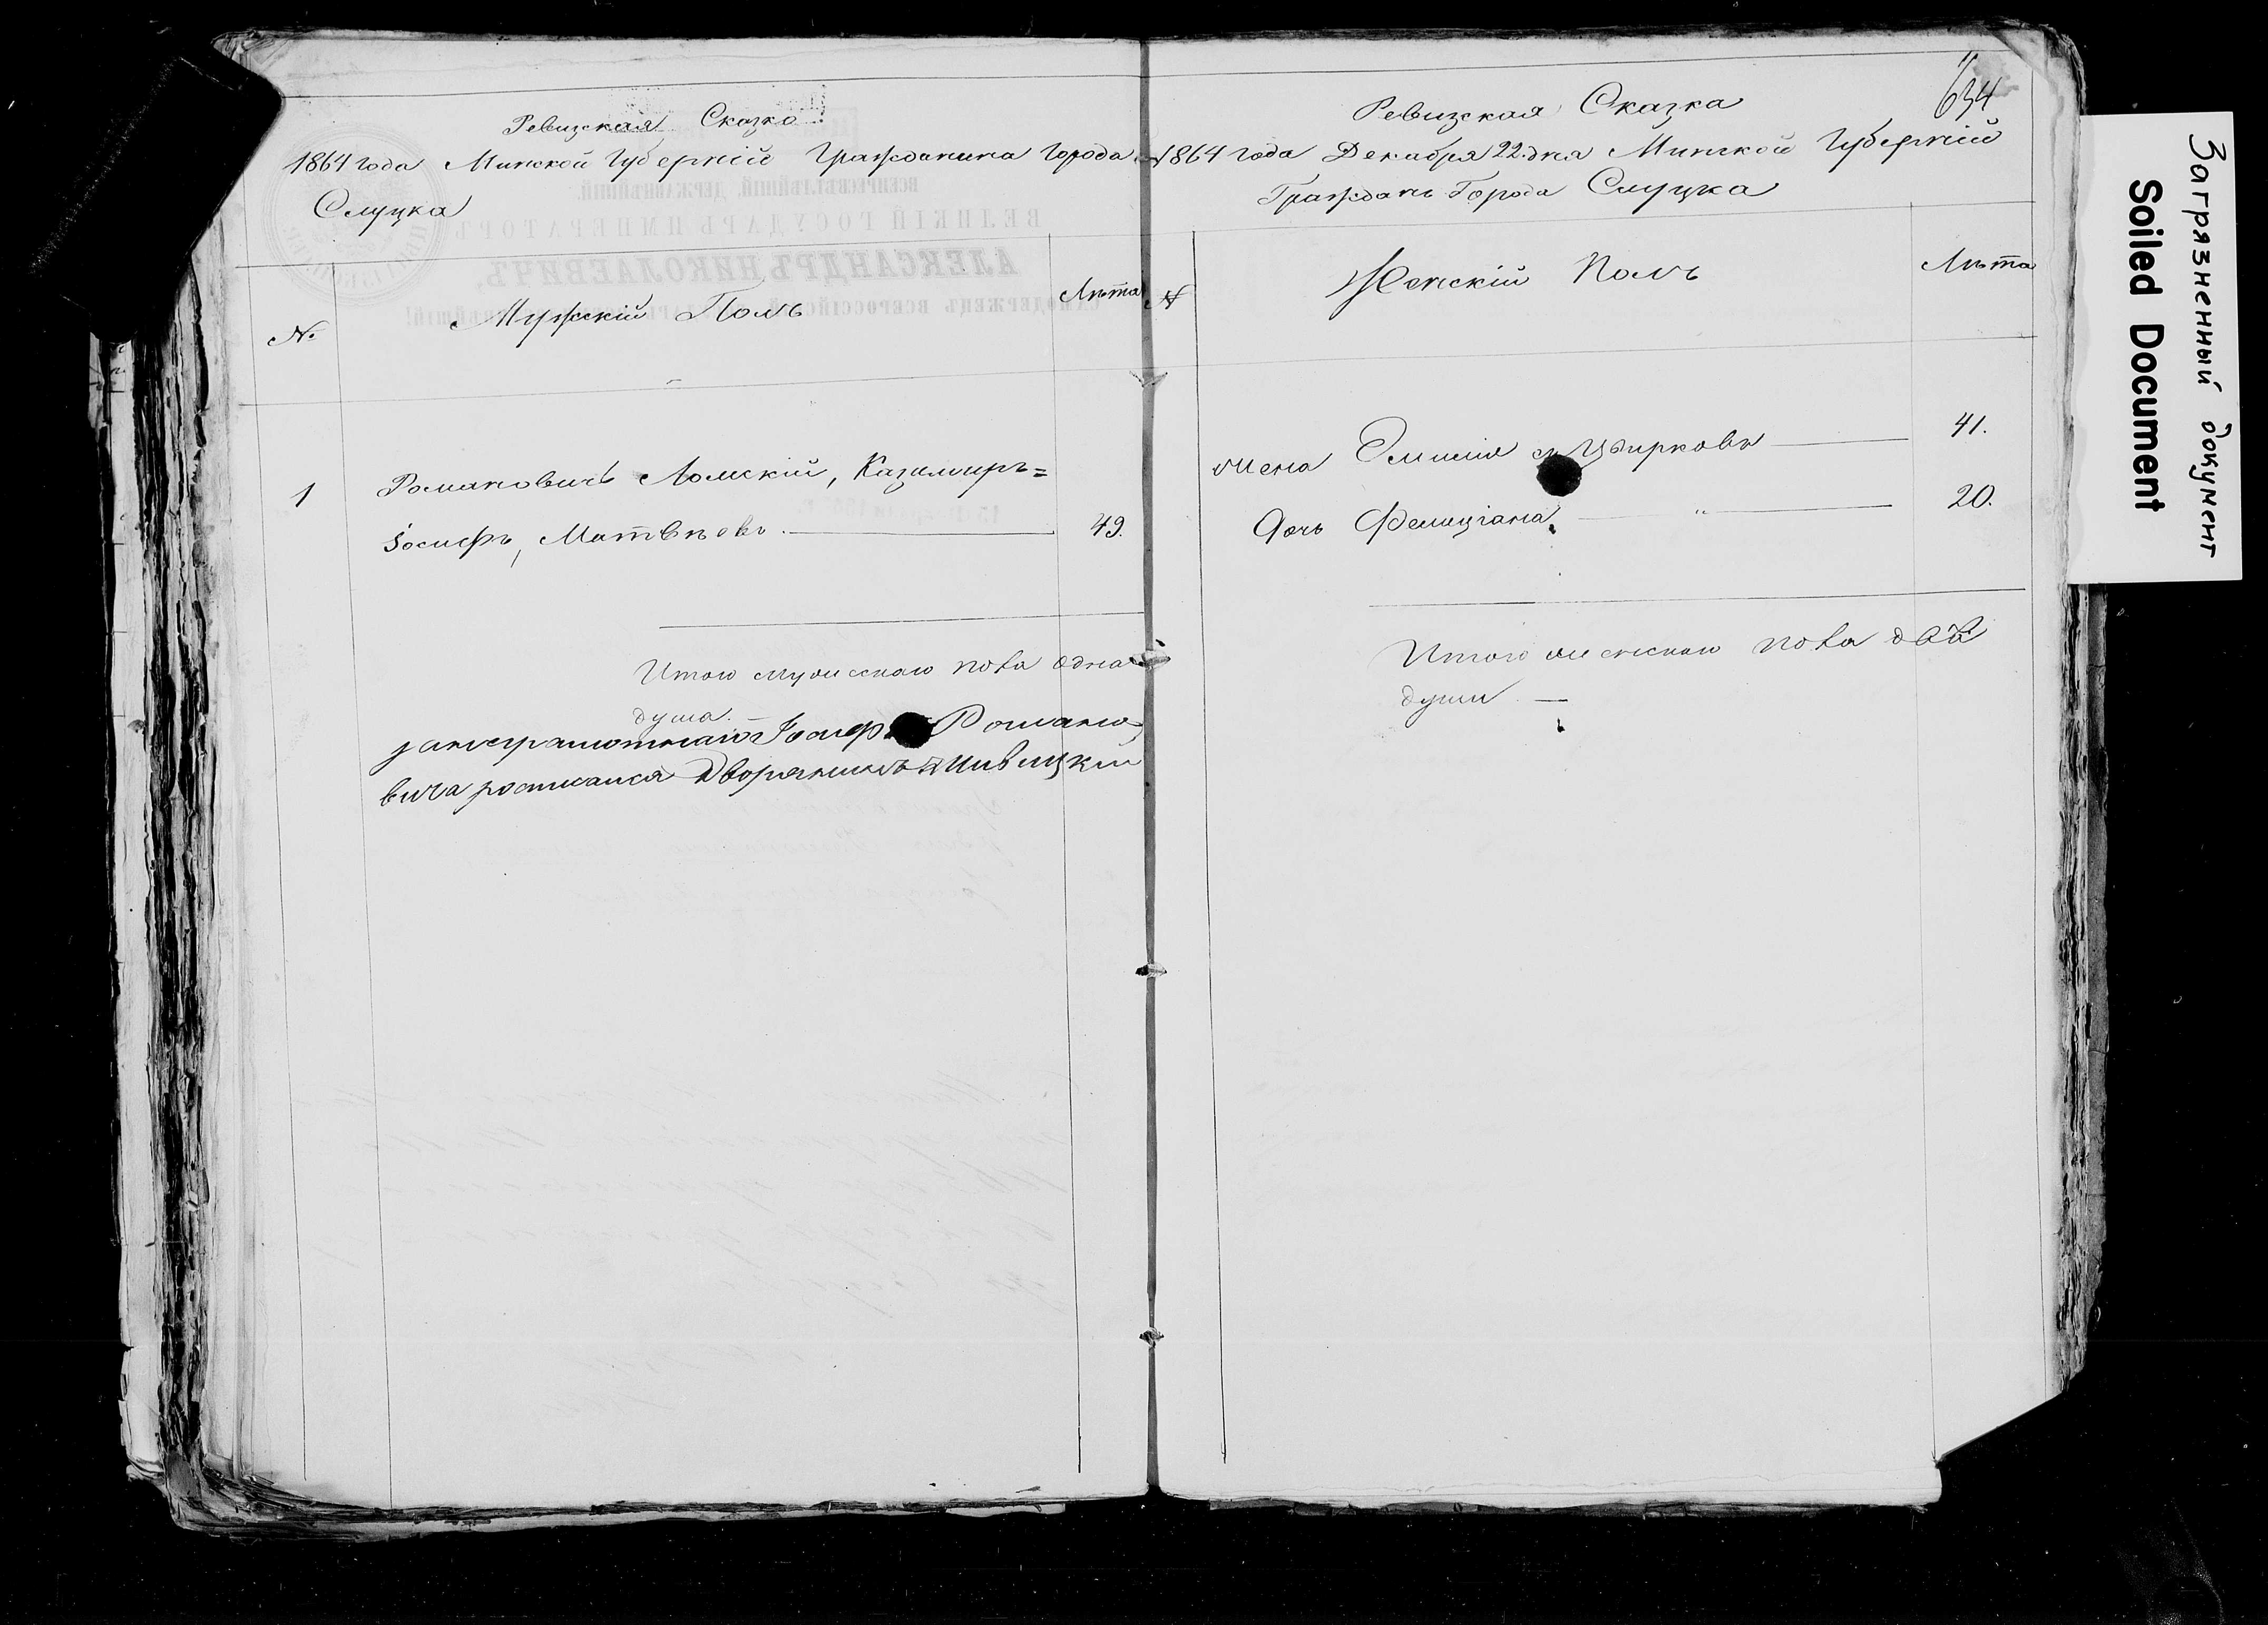 Ревизская Сказка
1864 года Минской Губерніи Гражданина Города
Слуцка
№
Мужскій Полъ
Лѣта
1
Романовичъ Ломскій, Казимиръ=
Іосифъ, Матвѣевъ
49.
Итого мужескаго пола одна
душа.
занеграмотнаго Іосифа Романо
вича росписался Дворянинъ
634
Ревизская Сказка
1864 года Декабря 22. дня Минской Губерніи
Гражданъ Города Слуцка
№
Женскій Полъ
Лѣта
жена Эмилія
41.
Дочь Фелиціана
"
20.
Итого женскаго пола двѣ
души
Загрязненный документ
Soiled Document
ВСЕПРЕСВѢТЛѢЙШІЙ, ДЕРЖАВНѢЙШІЙ
ВЕЛИКІЙ ГОСУДАРЬ ИМПЕРАТОРЪ
АЛЕКСАНДРЪ НИКОЛАЕВИЧЪ,